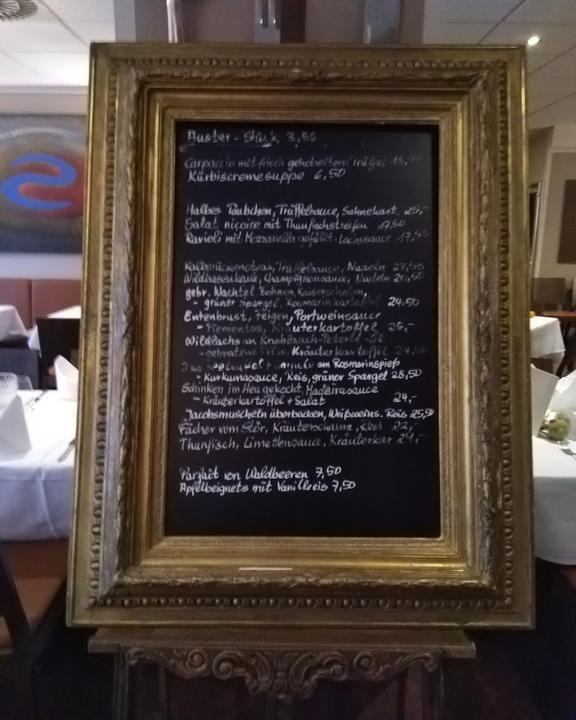 Auster - Stück 3,50
Carpaccio mit frisch gehobeltem Trüffel
Kürbiscremesuppe 6,50
Halbes Täubchen, Trüffelsauce, Sahnekart. 25,-
Salat niçoise mit Thunfischstreifen 17,50
Ravioli mit Mozzarella gefüllt, Lachssauce 17,50
Trüffelsauce, Nudeln 27,50
Champignonsauce, Nudeln 20,50
gebr. Wachtel
- grüner Spargel, Rosmarinkartoffel 24,50
Entenbrust, Feigen, Portweinsauce
- Pimentos, Kräuterkartoffel 25,-
Wildlachs an Knoblauch-Peterle-Öl
- gebratene Kräuterkartoffel 24,50
am Rosmarinspieß
- Kurkumasauce, Reis, grüner Spargel 28,50
Schinken im Heu gekocht, Madeirasauce
- Kräuterkartoffel + Salat 24,-
Jacobsmuscheln überbacken, Weißweins. Reis 25,50
Fächer vom Stör, Kräuterschaum, Reis 22,-
Thunfisch, Limettensauce, Kräuterkar 29,-
Parfait von Waldbeeren 7,50
Apfelbeignets mit Vanilleeis 7,50